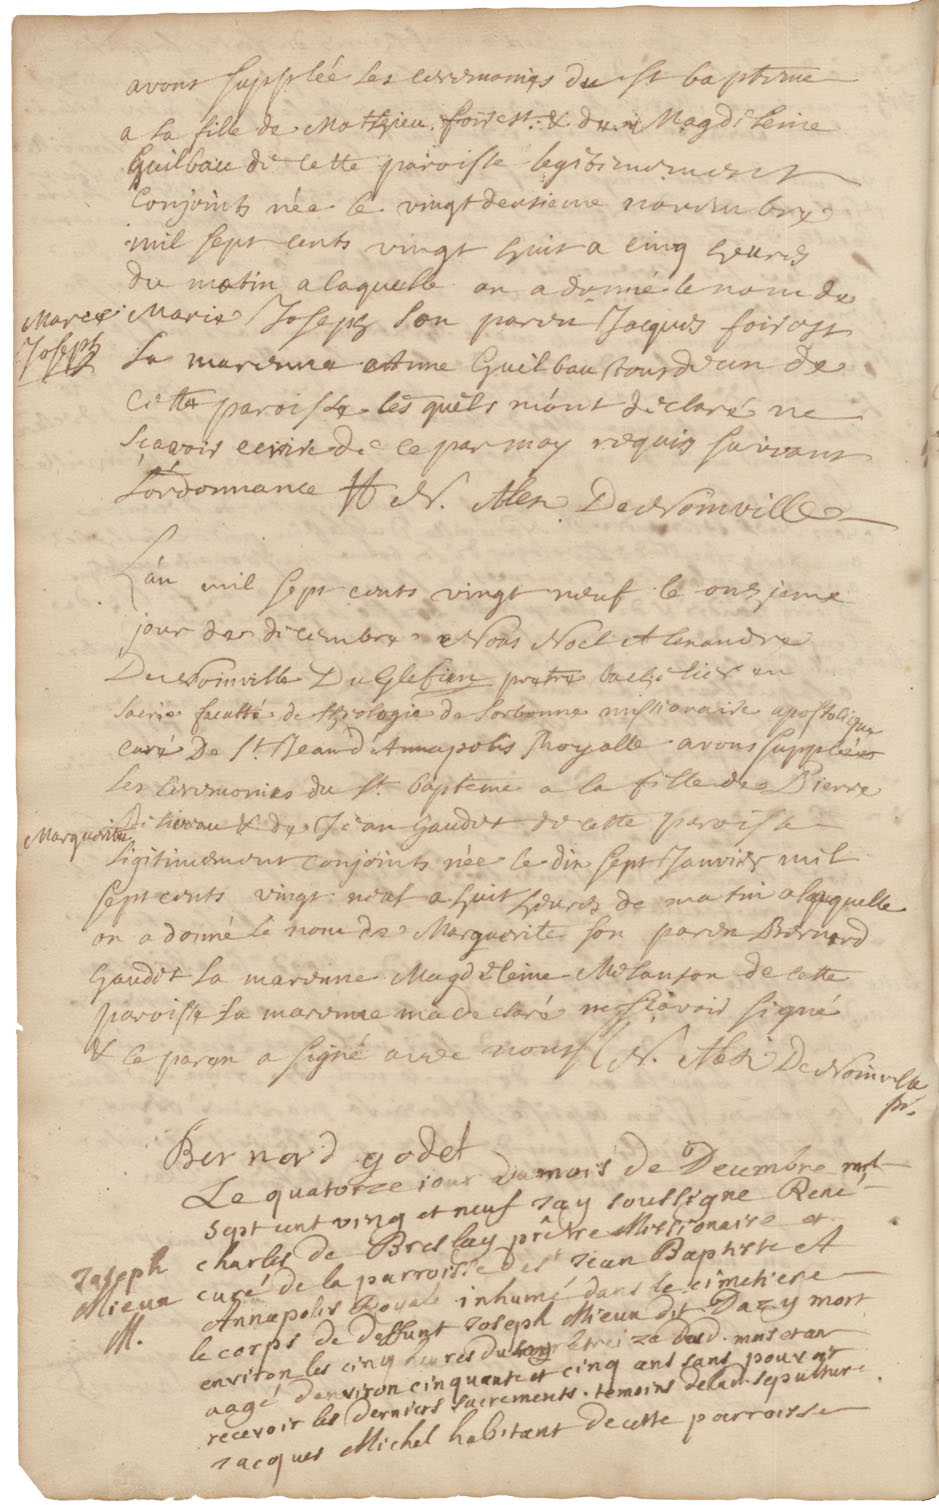 avons supplée les ceremonies du st bapteme
a la fille de Mathieu foirest & de Magdeleine
Guilbau de cette paroisse legitimement
Conjoints née le vingt deusieme novembre
mil sept cents vingt huit a cinq heures
du matin a laquelle on a donné le nom de
Marie Joseph
Marie Joseph son parin Jacques foirest
la marenne Anne Guilbau tous deux de
cette paroisse lesquels m'ont declaré ne
sçavoir ecrire de ce par moy requis suivant
l'ordonnance N. Alex. De Noinville
L'an mil sept cents vingt neuf le onzieme
jour de decembre Nous Noel Alexandre
De Noinville Du Glefien pretre bachelier en
sacrée faculté de theologie de Sorbonne missionaire apostolique
curé De St. Jean d'Annapolis Royalle avons supplée
les ceremonies du St. bapteme a la fille de Pierre
Marguerite
& de Jean Gaudet de cette paroisse
legitimement conjoints née le dix sept Janvier mil
sept cents vingt neuf a huit heures de matin a laquelle
on a donné le nom de Marguerite son parin Bernard
Gaudet la marenne Magdeleine Melanson de cette
paroisse la marenne m'a declaré ne sçavoir signé
& le parin a signé avec nous N. Alex. De Noinville
pr.
Bernard godet
Le quatorze iour du mois de Decembre mil
sept cent ving et neuf j'ay soussigné René
charles de Breslay prêtre Missionaire et
Joseph Mieux M.
curé de la parroisse de St Jean Baptiste A
Annapolis Royale inhumé dans le cimetiere
le corps de deffunt Joseph Mieux dit Dazy mort
environ les cinq heures du le treize dud. mois et an
aagé d'environ cinquante et cinq ans sans pouvoir
recevoir les derniers sacrements. temoins de lad. sepulture
Jacques Michel habitant de cette parroisse